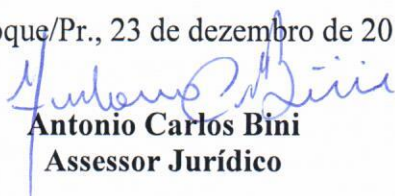 oque/Pr., 23 de dezembro de 20
Antonio C Bini
Antonio Carlos Bini
Assessor Jurídico